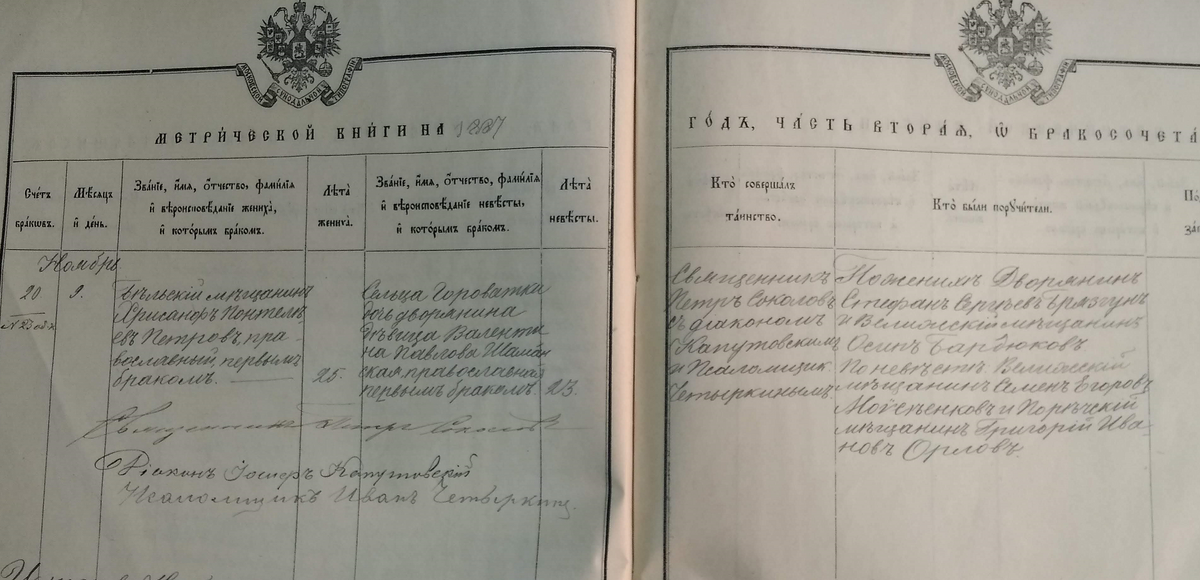 МОСКОВСКОЙ СѴНОДАЛЬНОЙ ТИПОГРАФІИ
МЕТРИ́ЧЕСКОЙ КНИ́ГИ НА 1887
Сче́тъ бра́кωвъ.
Мѣ́сяцъ и҆ де́нь.
Зва́нїе, и҆́мя, ѻ҆́тчество, фами́лїя
и҆ вѣроисповѣ́данїе жениха̀,
и҆ кото́рымъ бра́комъ.
Лѣ́та̀
жениха̀.
Зва́нїе, и҆́мя, ѻ҆́тчество, фами́лїя
и҆ вѣроисповѣ́данїе невѣ́сты,
и҆ кото́рымъ бра́комъ.
Лѣ́та̀
невѣ́сты.
Ноябрь
20
9.
Бѣльскій мѣщанинъ
Хрисанфъ Пантеле
евъ Петровъ, пра-
вославный, первымъ
бракомъ.
25.
Сельца Короватки
дворянина
дѣвица Валенти
на Павлова
ская, православная
первымъ бракомъ.
23.
Священникъ Петръ Соколовъ
Діаконъ Іосифъ Капутовскій
Псаломщикъ Иванъ Четыркинъ
МОСКОВСКОЙ СѴНОДАЛЬНОЙ ТИПОГРАФІИ
ГО́ДЪ, ЧА́СТЬ ВТОРА́Я, Ѡ҆ БРАКОСОЧЕТА́
Кто̀ соверша́лъ
та́инство.
Кто̀ бы́ли пору́чители.
Священникъ
Петръ Соколовъ
съ діакономъ
Капутовскимъ
и Псаломщик.
Четыркинымъ
По женихѣ Дворянинъ
Стефанъ Сергѣевъ
и Велижскій мѣщанинъ
Осипъ Бардюковъ
По невѣстѣ Велижскій
мѣщанинъ Семенъ Егоровъ
Моисеенковъ и Порѣчскій
мѣщанинъ Григорій Ива-
новъ Орловъ.